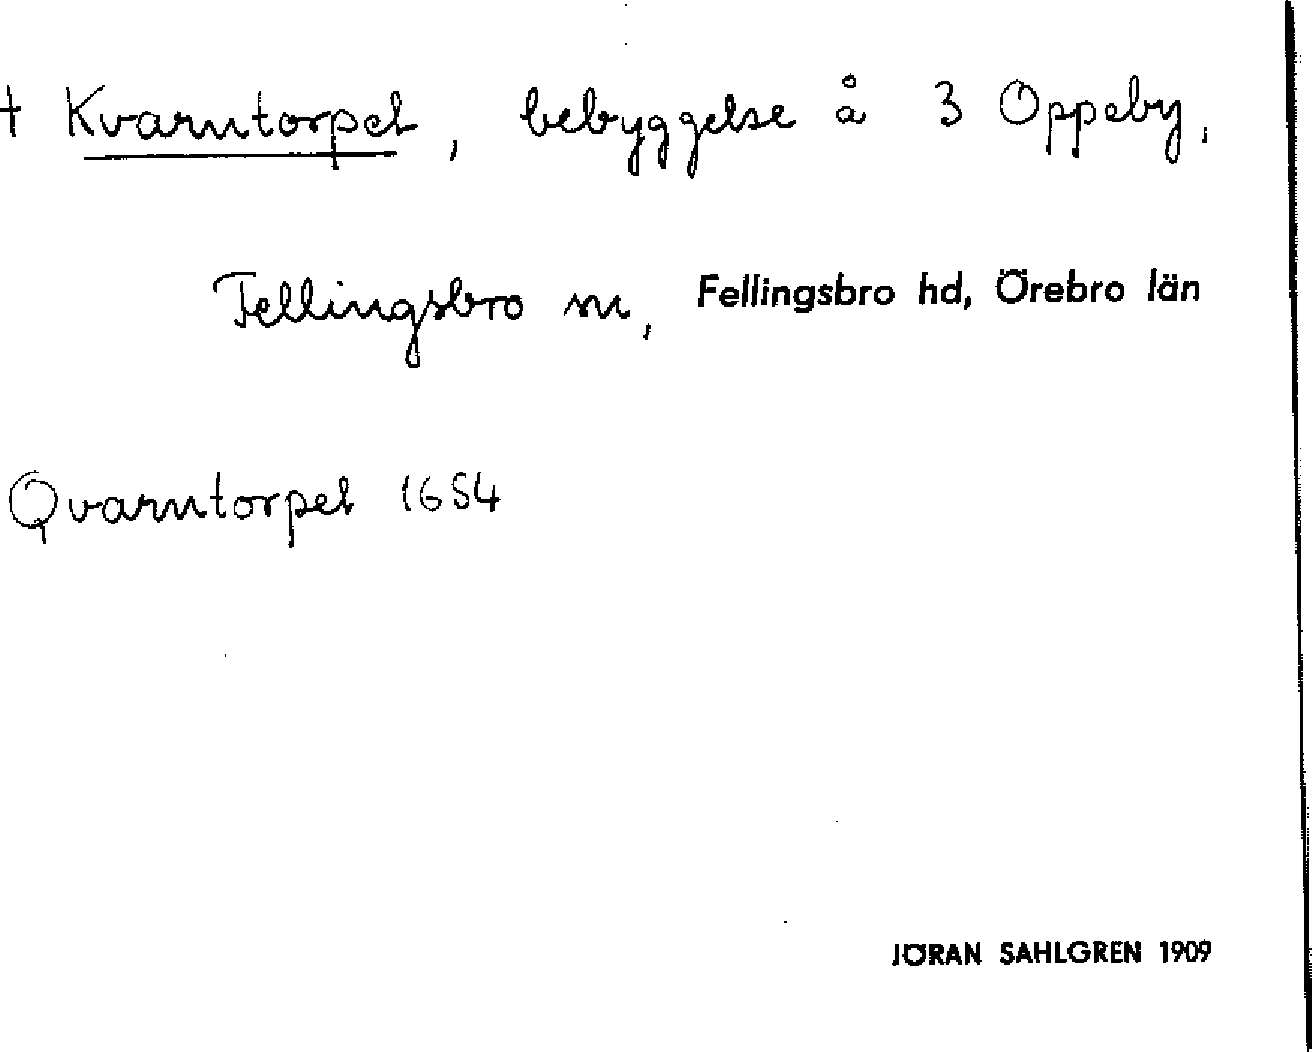 † Kvarntorpet, bebyggelse å 3 Oppeby,
Fellingsbro sn, Fellingsbro hd, Örebro län
Qvarntorpet 1654
JÖRAN SAHLGREN 1909